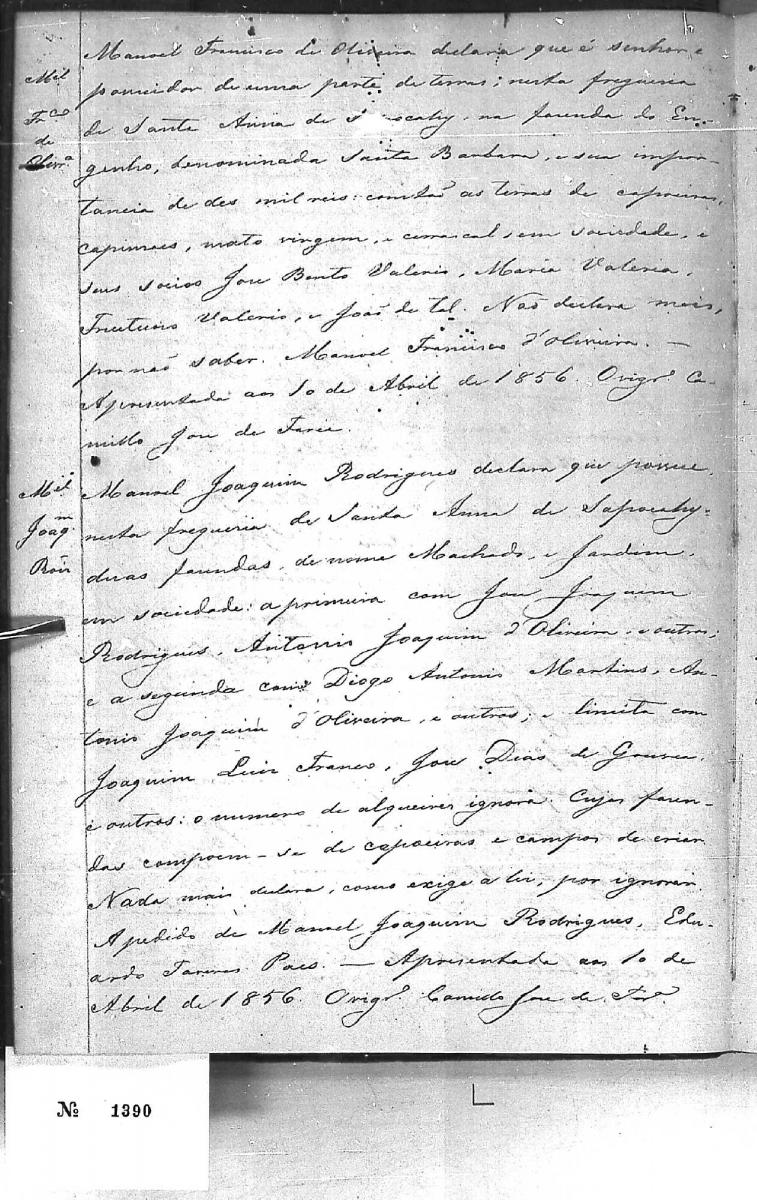 Mel
Frco
de
Olivra
Manoel Francisco de Oliveira declara que é senhor e
possuidor de uma parte de terras; nesta freguesia
de Santa Anna de Sapocahy, na fazenda do En-
genho, denominada Santa Barbara, e sua impor-
tancia de des mil reis: contaõ as terras de capoeiras,
capinzaes, mato virgem, e cerrascal, em sociedade, e
seus socios Jose Bento Valerio, Maria Valeria,
Fructuoso Valerio, e Joaõ de tal. Naõ declara mais,
por naõ saber. Manoel Francisco d'Oliveira. —
Apresentada aos 10 de Abril de 1856. O vigro. Ca-
millo Jose de Faria.
Mel
Joaqm
Roiz
Manoel Joaquim Rodrigues declara que possue,
nesta freguesia de Santa Anna de Sapocahy-
duas fazendas, de nome Machado, e Jardim,
em sociedade: a primeira com Jose Joaquim
Rodrigues, Antonio Joaquim d'Oliveira, e outros;
e a segunda com Diogo Antonio Martins, An-
tonio Joaquim d'Oliveira, e outros; e limita com
Joaquim Luiz Franco, Jose Dias de
e outros: o numero de alqueires ignora. Cujas fazen-
das compoem-se de capoeiras e campos de criar.
Nada mais declara, como exige a lei, por ignorar.
A pedido de Manoel Joaquim Rodrigues, Edu-
ardo Tavares Paes. — Apresentada aos 10 de
Abril de 1856. O vigro. Camillo Jose de Fra.
№ 1390